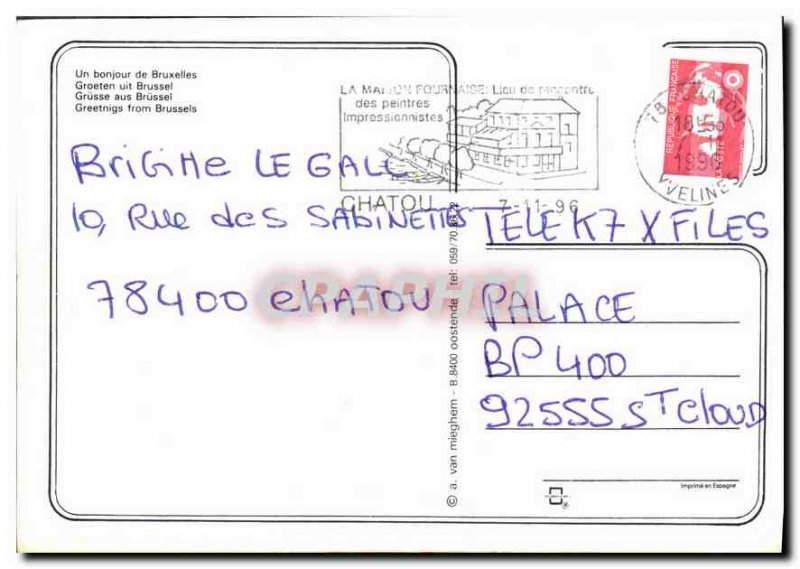 Un bonjour de Bruxelles
Groeten uit Brussel
Grüsse aus Brüssel
Greetnigs from Brussels
LA MAISON FOURNAISE: Lieu de rencontre
des peintres
Impressionnistes
CHATOU 7-11-96
REPUBLIQUE FRANÇAISE
LA POSTE
78 CHATOU
18H30
7-11
1996
YVELINES
BRiGiTTE LE GALL
10, Rue des SABINETTES
78400 CHATOU
TELE K7 X FiLES
PALACE
BP 400
92555 ST CLOUD
© a. van mieghem - B.8400 oostende tel: 059/70.
GRAPHIL
Imprimé en Espagne